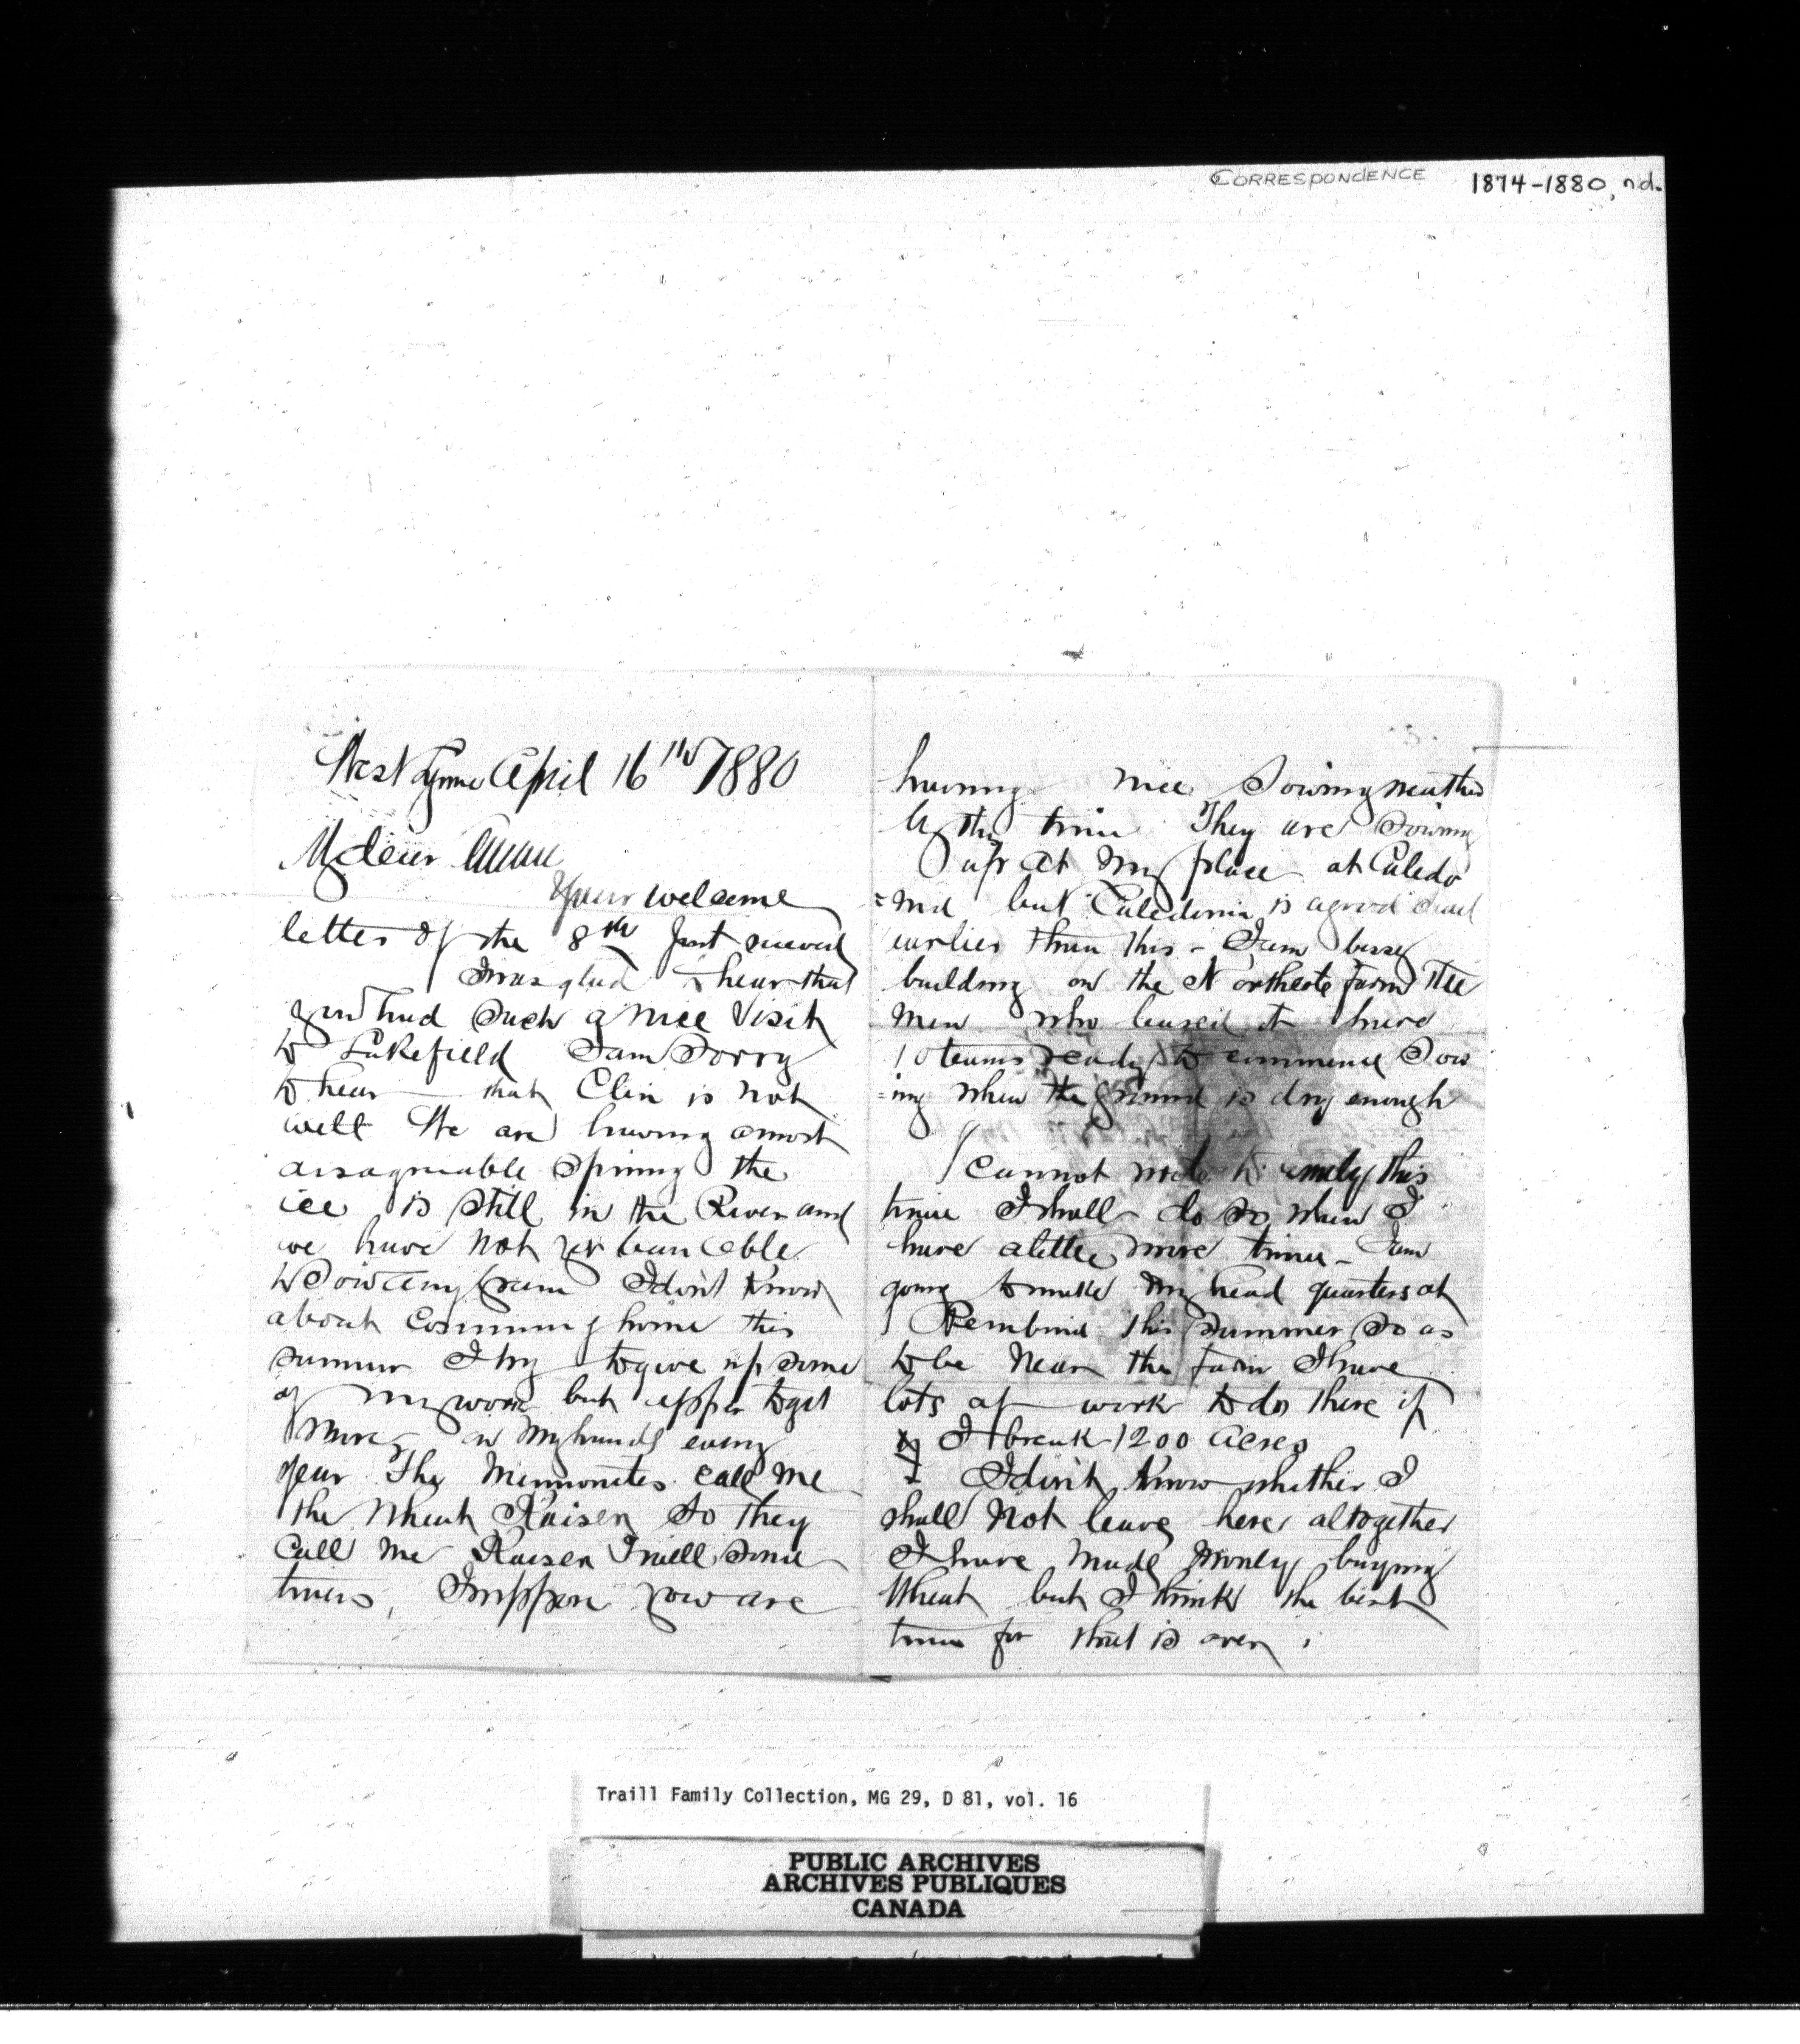 CORRESPONDENCE 1874-1880, n.d.
West Lynne April 16th 1880
My dear
Your welcome
letter of the 8th Just received
I was glad to hear that
you had such a nice Visit
to Lakefield I am Sorry
to hear that Clin is not
well We are having a most
disagreeable Spring the
ice is still in the River and
we have not yet been able
to Sow any grain I don't Know
about Comming home this
summer I try to give up some
of my work but appear to get
more on my hands every
year The Mennonites call me
the Wheat Kaiser so they
call me Kaiser Traill some
times, I suppose you are
3.
having nice Sowing weather
by this time They are Sowing
up at my place at Caledo
=nia but Caledonia is a good deal
earlier than this - I am busy
building on the Northcote farm The
Men who leased it have
10 teams ready to commence Sow
=ing when the ground is dry enough
I cannot write to this
time I shall do so when I
have a little more time - I am
going to make my head quarters at
Pembina this summer so as
to be Near the farm I have
lots of work to do there if
I break 1200 Acres
I don't Know whether I
shall Not leave here altogether
I have made money buying
Wheat but I think the best
time for that is over.
Traill Family Collection, MG 29, D 81, vol. 16
PUBLIC ARCHIVES
ARCHIVES PUBLIQUES
CANADA